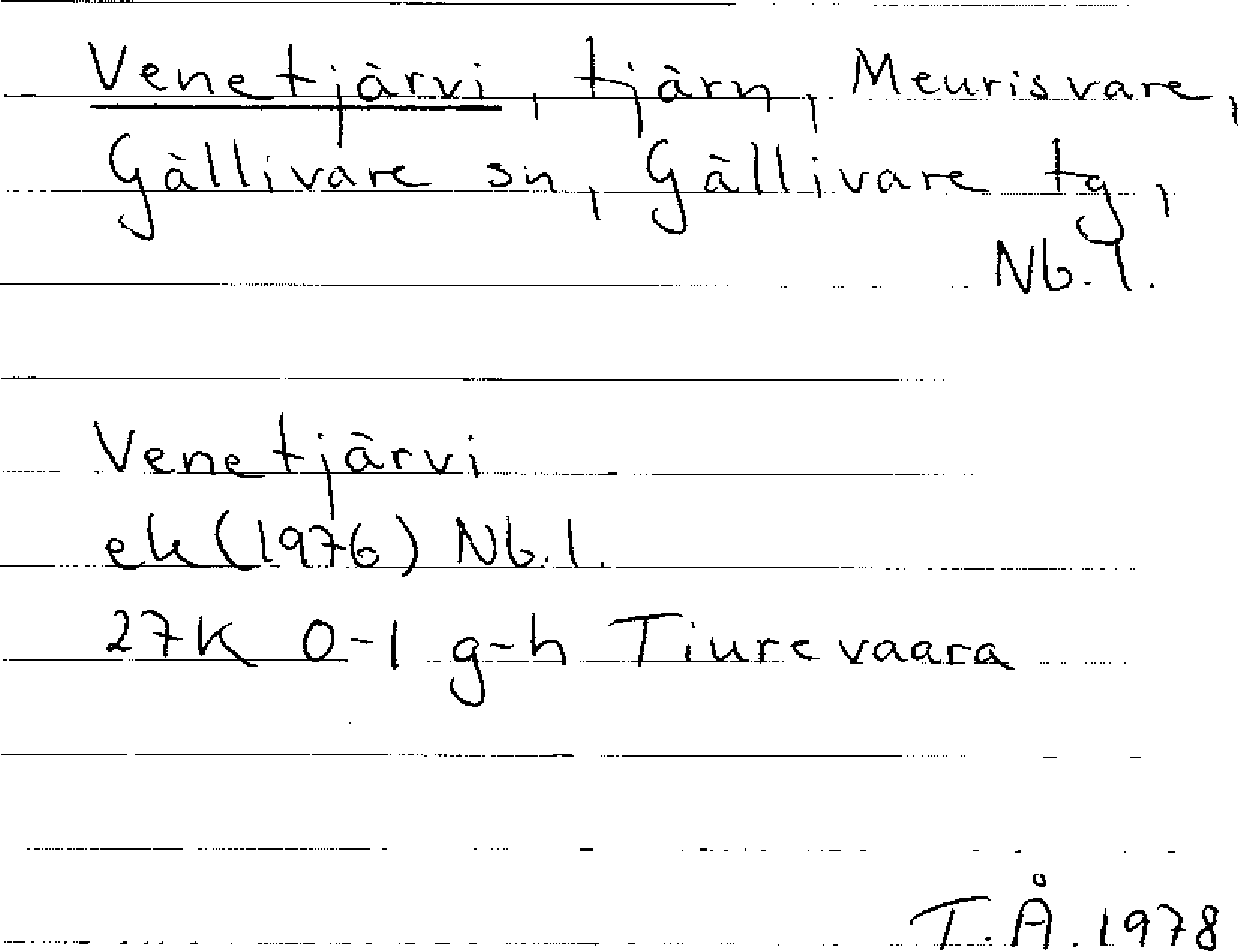 Venetjärvi, tjärn, Meurisvare,
Gällivare sn, Gällivare tg,
Nb. l.
Venetjärvi
ek (1976) Nb. l.
27K 0-1 g-h Tiurevaara
T.Å. 1978